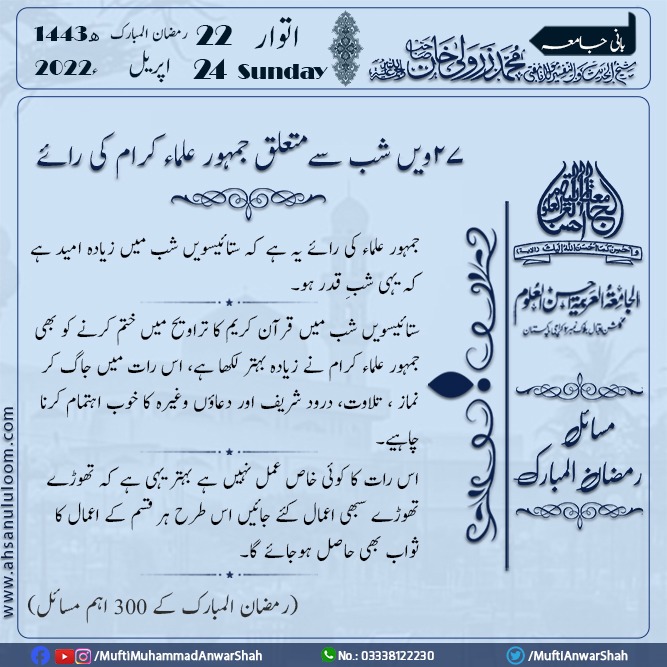 بانی جامعہ
شیخ الحدیث والتفسیر مفتی محمد زر ولی خان
اتوار 22 رمضان المبارک 1443ھ
Sunday 24 اپریل 2022ء
۲۷ویں شب سے متعلق جمہور علماء کرام کی رائے
جمہور علماء کی رائے یہ ہے کہ ستائیسویں شب میں زیادہ امید ہے
کہ یہی شبِ قدر ہو۔
ستائیسویں شب میں قرآن کریم کا تراویح میں ختم کرنے کو بھی
جمہور علماء کرام نے زیادہ بہتر لکھا ہے، اس رات میں جاگ کر
نماز ، تلاوت، درود شریف اور دعاؤں وغیرہ کا خوب اہتمام کرنا
چاہیے۔
اس رات کا کوئی خاص عمل نہیں ہے بہتر یہی ہے کہ تھوڑے
تھوڑے سبھی اعمال کئے جائیں اس طرح ہر قسم کے اعمال کا
ثواب بھی حاصل ہوجائے گا۔
(رمضان المبارک کے 300 اہم مسائل)
الجامعۃ العربیۃ احسن العلوم
گلشن اقبال بلاک نمبر ۲ کراچی پاکستان
مسائل
رمضان المبارک
www.ahsanululoom.com
/MuftiMuhammadAnwarShah
No.: 03338122230
/MuftiAnwarShah